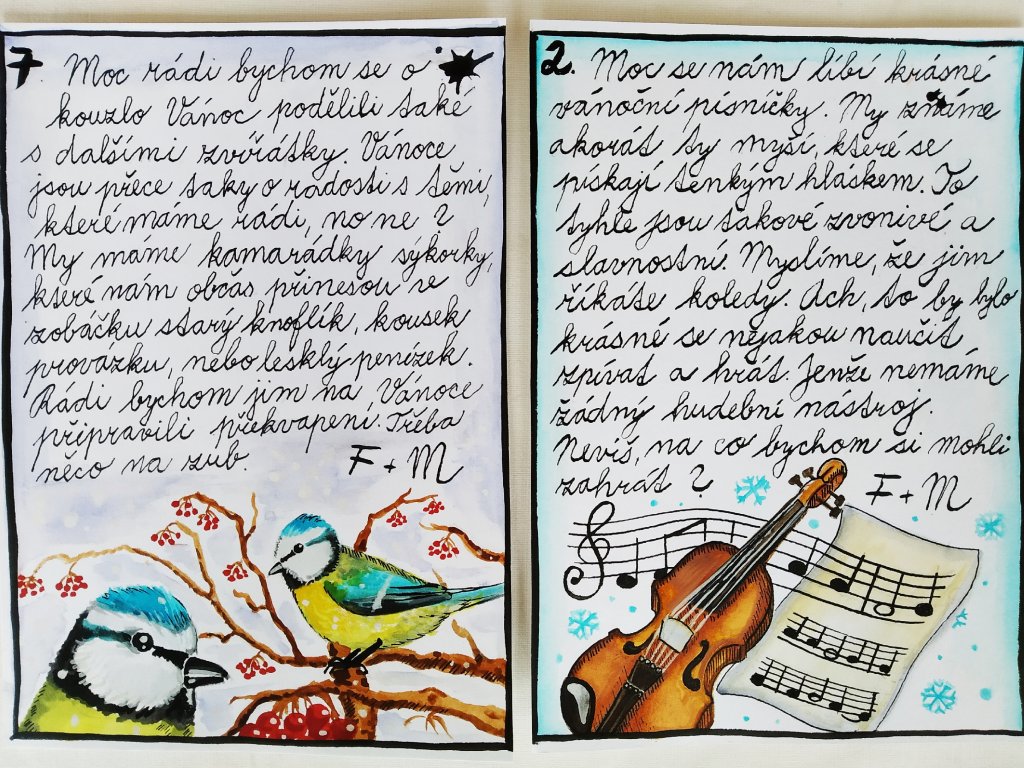 7. Moc rádi bychom se o
kouzlo Vánoc podělili také
s dalšími zvířátky. Vánoce
jsou přece taky o radosti s těmi,
které máme rádi, no ne?
My máme kamarádky sýkorky,
které nám občas přinesou ve
zobáčku starý knoflík, kousek
provázku, nebo lesklý penízek.
Rádi bychom jim na Vánoce
připravili překvapení. Třeba
něco na zub.
F + M
2. Moc se nám líbí krásné
vánoční písničky. My známe
akorát ty myší, které se
pískají tenkým hláskem. To
tyhle jsou takové zvonivé a
slavnostní. Myslíme, že jim
říkáte koledy. Ach, to by bylo
krásné se nějakou naučit
zpívat a hrát. Jenže nemáme
žádný hudební nástroj.
Nevíš, na co bychom si mohli
zahrát?
F + M